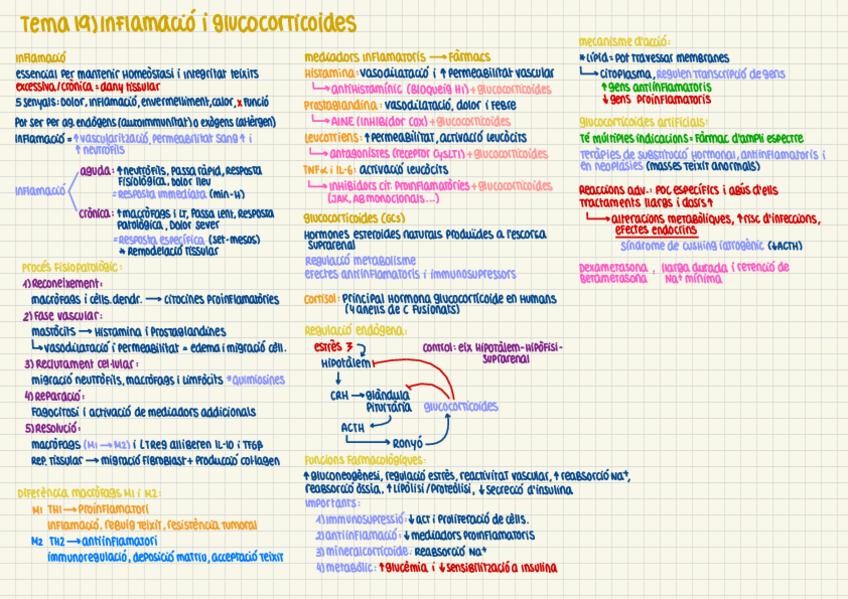 Tema 19) Inflamació i glucocorticoides
Inflamació
essencial per mantenir homeòstasi i integritat teixits
excessiva/crònica = dany tissular
5 senyals: dolor, inflamació, envermelliment, calor, x funció
Pot ser per ag. endògens (autoimmunitat) o exògens (al·lèrgen)
Inflamació = ↑ vascularització, permeabilitat sang ↑ i
↑ neutròfils
Inflamació
aguda: ↑ neutròfils, passa ràpid, resposta
fisiològica, dolor lleu
= resposta immediata (min-H)
crònica: ↑ macròfags i LT, passa lent, resposta
patològica, dolor sever
= resposta específica (set-mesos)
* Remodelació tissular
Procés fisiopatològic:
1) Reconeixement:
macròfags i cèl·ls. dendr. → citocines proinflamatòries
2) Fase vascular:
mastòcits → Histamina i prostaglandines
↳ vasodilatació i permeabilitat = edema i migració cèl·l.
3) Reclutament cel·lular:
migració neutròfils, macròfags i limfòcits *quimiosines
4) Reparació:
Fagocitosi i activació de mediadors addicionals
5) Resolució:
macròfags (M1 → M2) i LTreg alliberen IL-10 i TFGβ
Rep. tissular → migració fibroblast + producció col·lagen
Diferència macròfags M1 i M2:
M1 TH1 → Proinflamatori
inflamació, rebuig teixit, resistència tumoral
M2 TH2 → antiinflamatori
immunoregulació, deposició matriu, acceptació teixit
mediadors inflamatoris → Fàrmacs
Histamina: vasodilatació i ↑ permeabilitat vascular
↳ antihistamínic (Bloqueig H1) + glucocorticoides
Prostaglandina: vasodilatació, dolor i febre
↳ AINE (inhibidor COX) + glucocorticoides
Leucotriens: ↑ permeabilitat, activació leucòcits
↳ antagonistes (receptor CysLT1) + glucocorticoides
TNFα i IL-6: activació leucòcits
↳ inhibidors cit. proinflamatòries + glucocorticoides
(JAK, AB monoclonals...)
glucocorticoides (GCs)
Hormones esteroides naturals produïdes a l'escorça
suprarenal
Regulació metabolisme
efectes antiinflamatoris i immunosupressors
Cortisol: Principal hormona glucocorticoide en humans
(4 anells de C fusionats)
Regulació endògena:
estrès
control: eix Hipotàlem-Hipòfisi-
suprarenal
Hipotàlem
CRH → glàndula
Pituitària
glucocorticoides
ACTH
Ronyó
Funcions farmacològiques:
↑ gluconeogènesi, regulació estrès, reactivitat vascular, ↑ reabsorció Na⁺,
reabsorció òssia, ↑ lipòlisi/proteòlisi, ↓ secreció d'insulina
Importants:
1) immunosupressió: ↓ act i proliferació de cèl·ls.
2) antiinflamació: ↓ mediadors proinflamatoris
3) mineralcorticoide: Reabsorció Na⁺
4) metabòlic: ↑ glucèmia i ↓ sensibilització a insulina
mecanisme d'acció:
* Lípid = pot travessar membranes
↳ citoplasma, regulen transcripció de gens
↑ gens antiinflamatoris
↓ gens proinflamatoris
glucocorticoides artificials:
Té múltiples indicacions = Fàrmac d'ampli espectre
Teràpies de substitució hormonal, antiinflamatoris i
en neoplàsies (masses teixit anormals)
Reaccions adv.: poc específics i abús d'ells
tractaments llargs i dosis ↑
↳ alteracions metabòliques, ↑ risc d'infeccions,
efectes endocrins
síndrome de Cushing iatrogènic (↓ ACTH)
Dexametasona, llarga durada i retenció de
Betametasona Na⁺ mínima